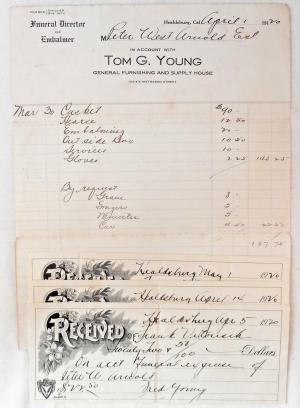 Funeral Director
and
Embalmer
Healdsburg, Cal. April 1 1920
M Peter West Arnold Est
IN ACCOUNT WITH
TOM G. YOUNG
GENERAL FURNISHING AND SUPPLY HOUSE
Mar 30 Casket $90 -
Hearse 12.50
Embalming 25 -
Out side Box 10.50
Services 10 -
Gloves 2.25
By request
Grave 8 -
Singers 5 -
Minister 5 -
Car 4.50
Healdsburg May 1 1920
Healdsburg April 14 1920
Healdsburg Apr 5 1920
RECEIVED OF Frank
Twenty two & 50/100 Dollars
On acct funeral expense of
Peter W. Arnold
$22.50 Fred Young